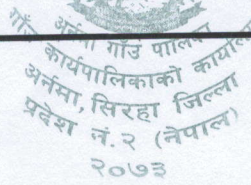 अर्नमा गाउँ पालिका
गाउँ कार्यपालिकाको कार्यालय
अर्नमा, सिरहा जिल्ला
प्रदेश नं.२ (नेपाल)
२०७३